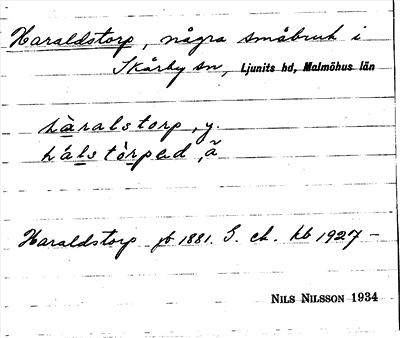 Haraldstorp, några småbruk i
Skårby sn, Ljunits hd, Malmöhus län
hàralstorp, y.
háls tòrpad, ã
Haraldstorp jb 1881. G. ek. kb 1927 –
NILS NILSSON 1934